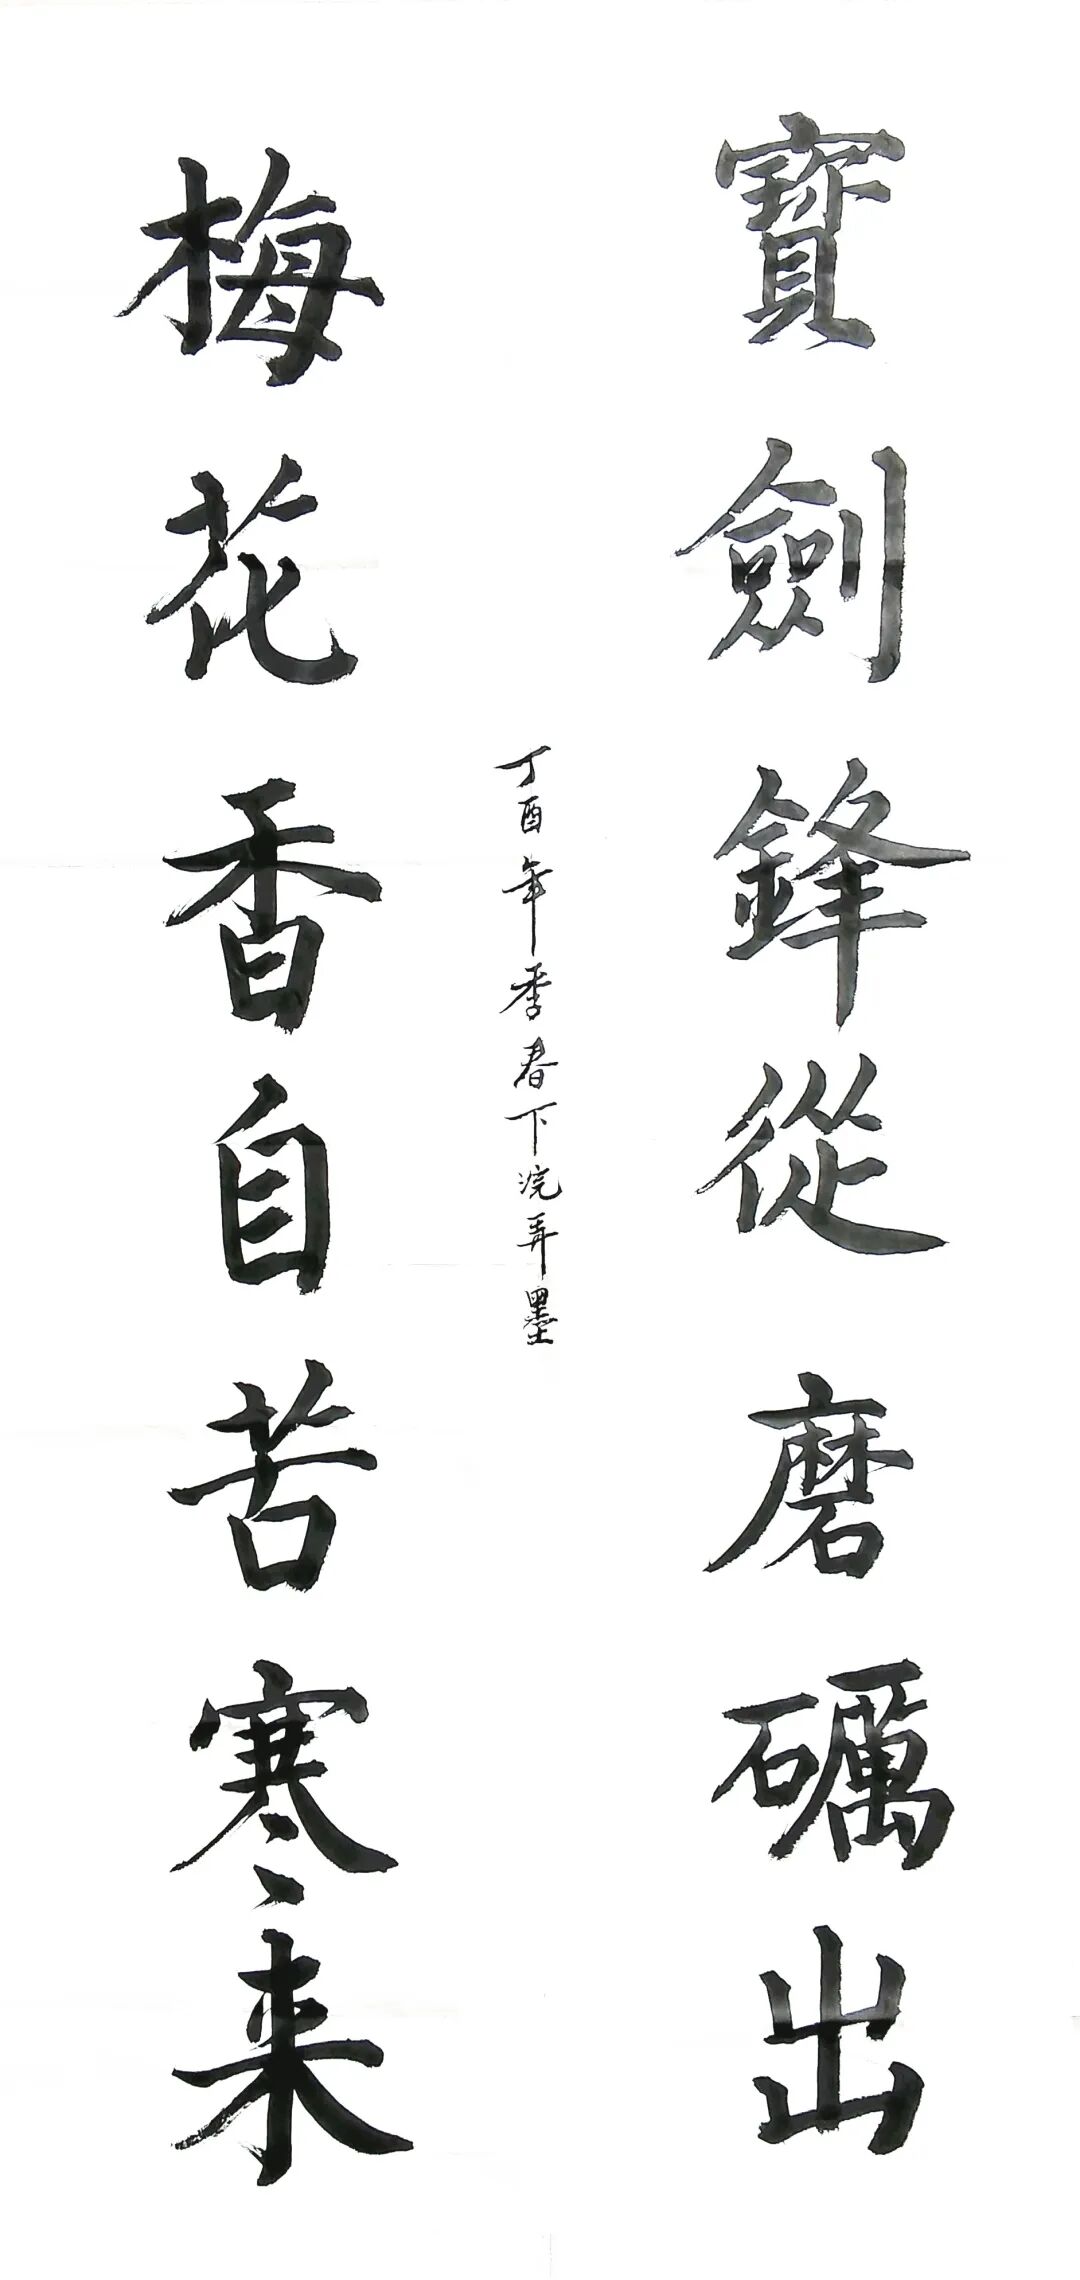 寶劍鋒從磨礪出
梅花香自苦寒来
丁酉年季春下浣弄墨